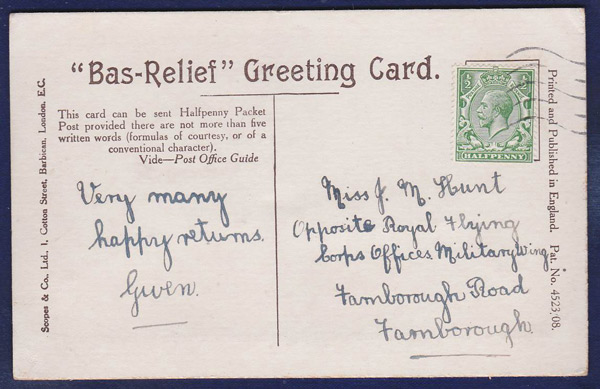 "Bas-Relief" Greeting Card.
This card can be sent Halfpenny Packet
Post provided there are not more than five
written words (formulas of courtesy, or of a
conventional character).
Vide—Post Office Guide
Very many
happy returns.
Gwen.
Scopes & Co., Ltd. 1, Cotton Street, Barbican, London. E.C.
½ ½
HALFPENNY
Miss J. M. Hunt
Opposite Royal Flying
Corps Offices. Military Wing
Farnborough Road
Farnborough.
Printed and Published in England. Pat. No. 4523/08.